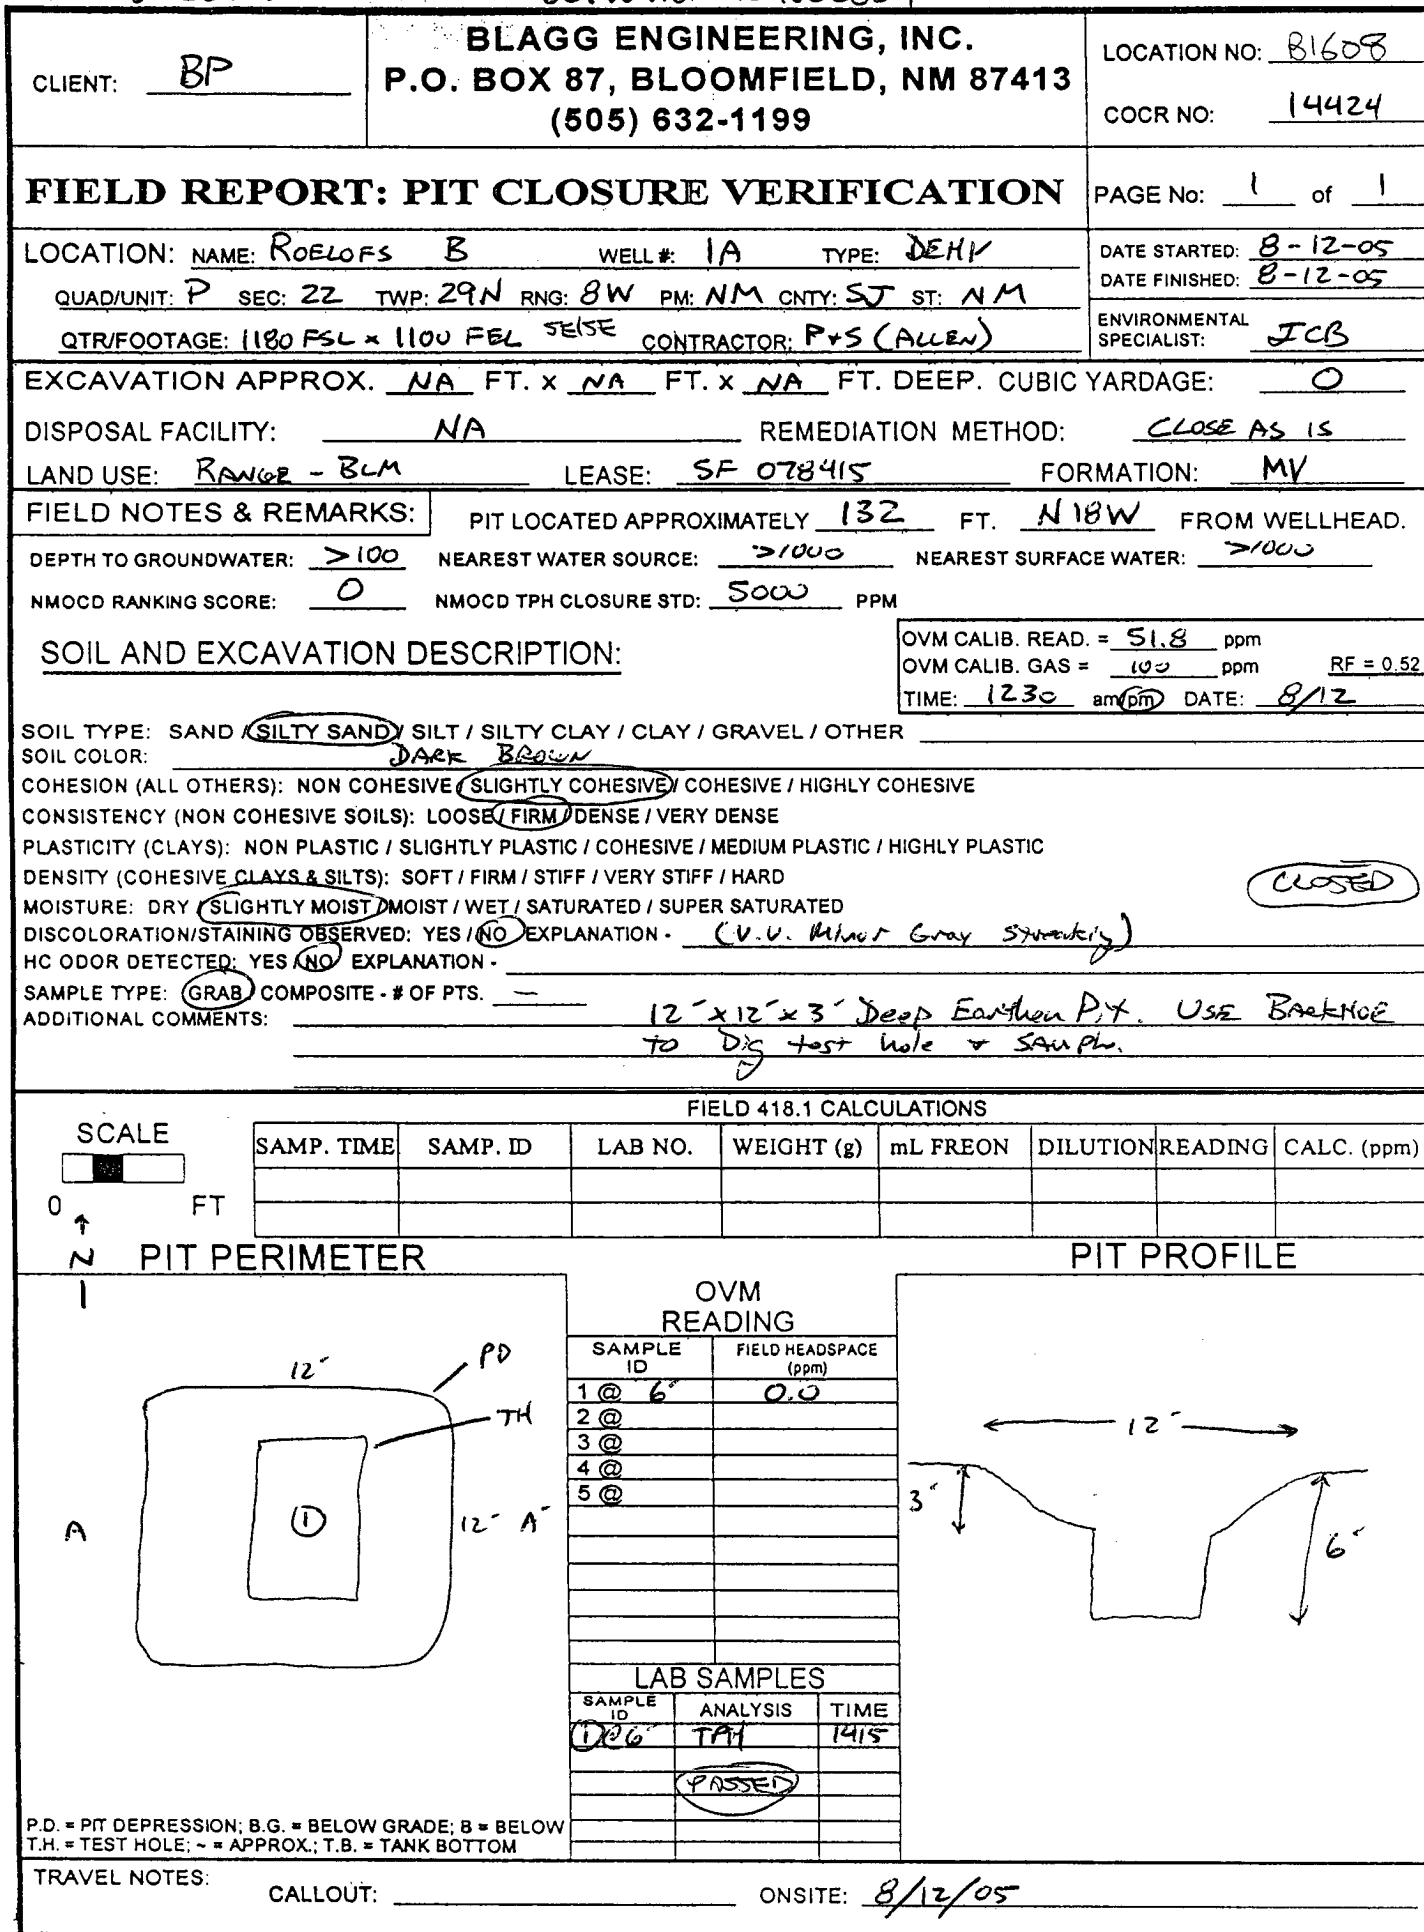 BLAGG ENGINEERING, INC.
P.O. BOX 87, BLOOMFIELD, NM 87413
(505) 632-1199
CLIENT: BP
LOCATION NO: B1608
COCR NO: 14424
FIELD REPORT: PIT CLOSURE VERIFICATION
PAGE No: 1 of 1
LOCATION: NAME: ROELOFS B WELL #: 1A TYPE: DEHY
DATE STARTED: 8-12-05
DATE FINISHED: 8-12-05
QUAD/UNIT: P SEC: 22 TWP: 29N RNG: 8W PM: NM CNTY: SJ ST: NM
QTR/FOOTAGE: 1180 FSL x 1100 FEL SE/SE CONTRACTOR: P+S (ALLEN)
ENVIRONMENTAL SPECIALIST: JCB
EXCAVATION APPROX. NA FT. x NA FT. x NA FT. DEEP. CUBIC YARDAGE: 0
DISPOSAL FACILITY: NA REMEDIATION METHOD: CLOSE AS IS
LAND USE: RANGE - BLM LEASE: SF 078415 FORMATION: MV
FIELD NOTES & REMARKS: PIT LOCATED APPROXIMATELY 132 FT. N18W FROM WELLHEAD.
DEPTH TO GROUNDWATER: >100 NEAREST WATER SOURCE: >1000 NEAREST SURFACE WATER: >1000
NMOCD RANKING SCORE: 0 NMOCD TPH CLOSURE STD: 5000 PPM
SOIL AND EXCAVATION DESCRIPTION:
OVM CALIB. READ. = 51.8 ppm
OVM CALIB. GAS = 100 ppm RF = 0.52
TIME: 1230 am/pm DATE: 8/12
SOIL TYPE: SAND / SILTY SAND / SILT / SILTY CLAY / CLAY / GRAVEL / OTHER
SOIL COLOR: DARK BROWN
COHESION (ALL OTHERS): NON COHESIVE / SLIGHTLY COHESIVE / COHESIVE / HIGHLY COHESIVE
CONSISTENCY (NON COHESIVE SOILS): LOOSE / FIRM / DENSE / VERY DENSE
PLASTICITY (CLAYS): NON PLASTIC / SLIGHTLY PLASTIC / COHESIVE / MEDIUM PLASTIC / HIGHLY PLASTIC
DENSITY (COHESIVE CLAYS & SILTS): SOFT / FIRM / STIFF / VERY STIFF / HARD
CLOSED
MOISTURE: DRY / SLIGHTLY MOIST / MOIST / WET / SATURATED / SUPER SATURATED
DISCOLORATION/STAINING OBSERVED: YES / NO EXPLANATION - (V.V. Minor Gray Streaking)
HC ODOR DETECTED: YES / NO EXPLANATION -
SAMPLE TYPE: GRAB / COMPOSITE - # OF PTS. —
ADDITIONAL COMMENTS: 12' x 12' x 3' Deep Earthen Pit. USE BACKHOE
TO Dig test hole + SAMPLE.
FIELD 418.1 CALCULATIONS
SCALE
0 FT
SAMP. TIME SAMP. ID LAB NO. WEIGHT (g) mL FREON DILUTION READING CALC. (ppm)
N
PIT PERIMETER
PIT PROFILE
OVM READING
SAMPLE ID FIELD HEADSPACE (ppm)
1 @ 6' 0.0
2 @
3 @
4 @
5 @
12'
PD
TH
1
A
12' A'
12'
3'
6'
LAB SAMPLES
SAMPLE ID ANALYSIS TIME
1 @ 6' TPH 1415
PASSED
P.D. = PIT DEPRESSION; B.G. = BELOW GRADE; B = BELOW
T.H. = TEST HOLE; ~ = APPROX.; T.B. = TANK BOTTOM
TRAVEL NOTES: CALLOUT: ONSITE: 8/12/05